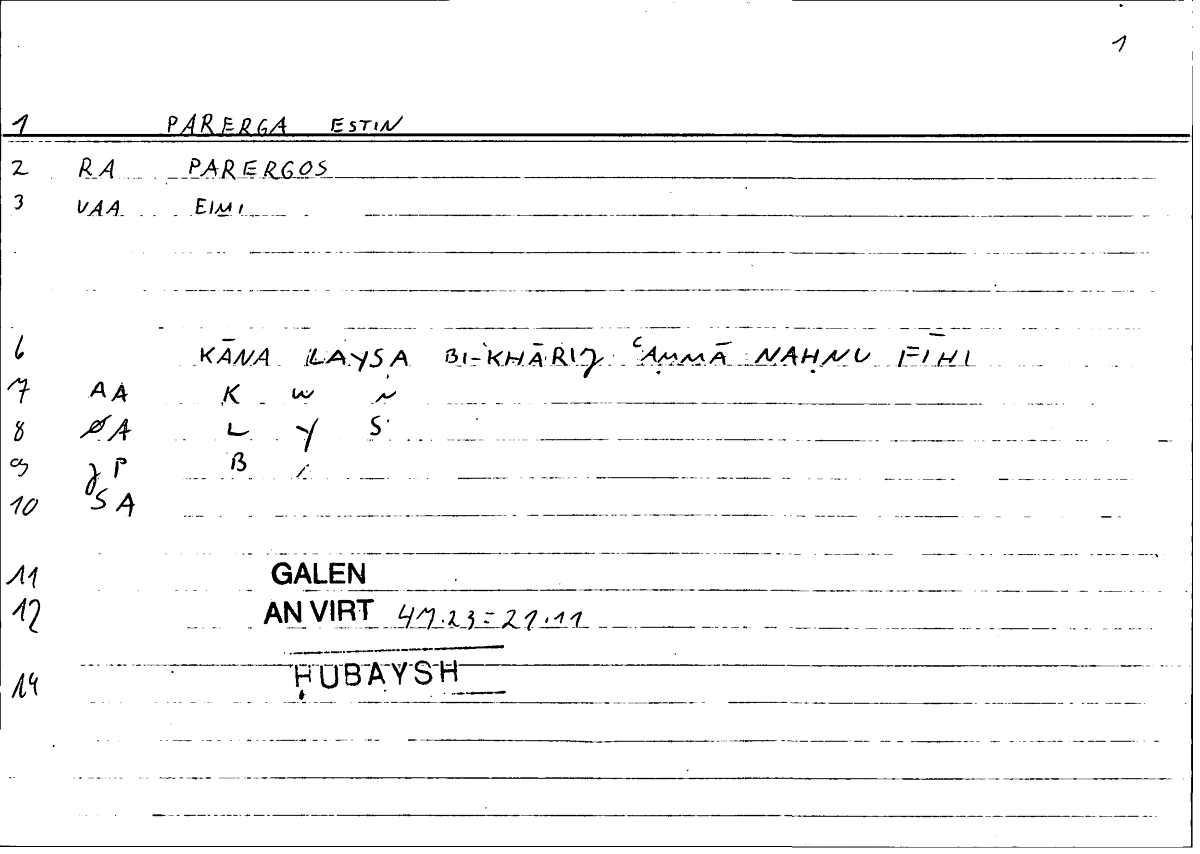 1
1 PARERGA ESTIN
2 RA PARERGOS
3 VAA EIMI
6 KĀNA LAYSA BI-KHĀRIJ ʿAMMĀ NAḤNU FĪHI
7 AA K W N
8 ØA L Y S
9 JP B
10 SA
11 GALEN
12 AN VIRT 47.23=21.11
14 ḤUBAYSH